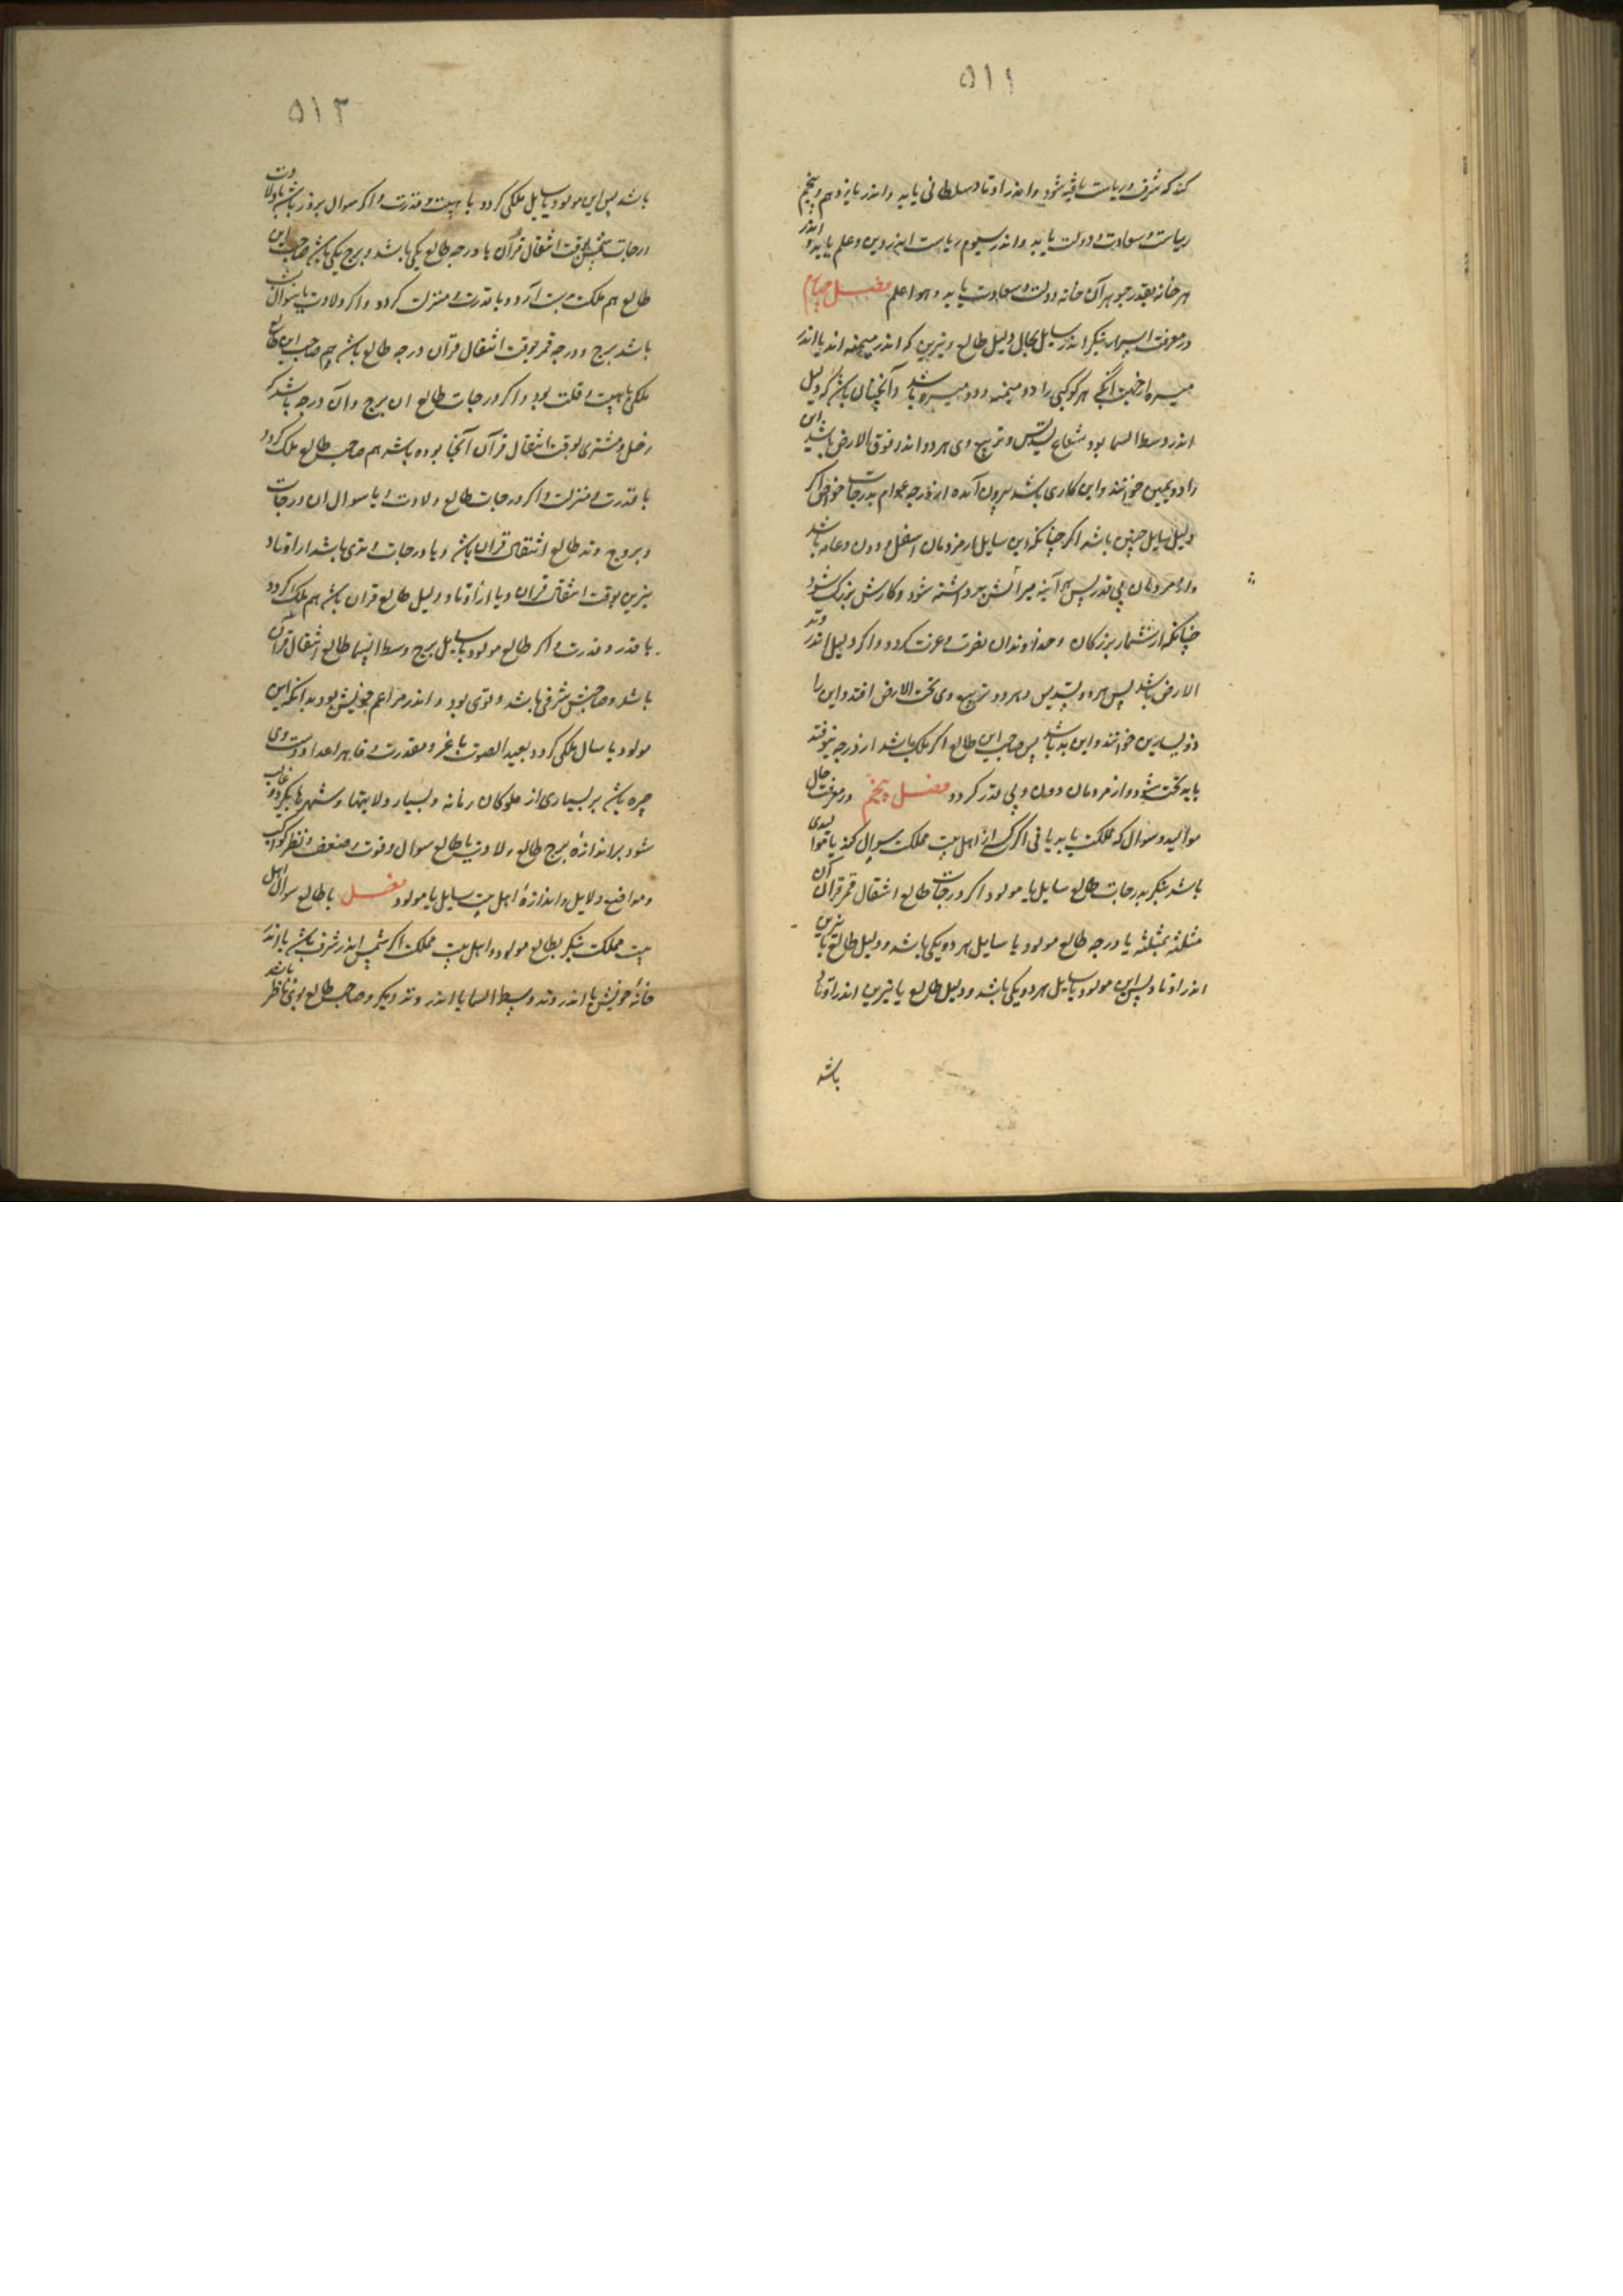 ۵۱۱
کند که شرف و ریاست یافته شود و اندر اوتاد سلطانی یابد و اندر یازدهم و پنجم
ریاست و سعادت و دولت یابد و اندر سیوم ریاست اندر دین و علم یابد و اندر
هر خانه بقدر جوهر آن خانه دولت و سعادت یابد و هو اعلم فصل چهارم
در معرفت بنکر اندر سایل بحال دلیل طالع و نیرین که اندر میمنه اند یا اندر
میسره هر کوکبی را دو میمنه و دو میسره باشد و آنچنان باشد که دلیل
اندر وسط السما بود شعاع تسدیس و تربیع وی هر دو اندر فوق الارض باشد این
را ذو یمین خوانند و این کاری باشد بیرون آمده از درجه عوام بدرجات خواص اگر
دلیل سایل چنین باشد اگر چنانکه این سایل از مردمان اسفل و دون و عامه باشد
و از مردمان بی قدر پس هر آینه میراثش برداشته شود و کارش بزرک شود
چنانکه از شمار بزرکان و خداوندان نصرت و عزت کردد و اگر دلیل اندر وتد
الارض باشد پس هر دو تسدیس و هر دو تربیع وی تحت الارض افتد و این را
ذو یسارین خوانند و این بد باشد پس صاحب این طالع اگر ملک باشد از درجه بیوفتد
پایه تخت شود و از مردمان دون و بی قدر کردد فصل پنجم در معرفت حال
موالید و سوال که مملکت یابد یا نی اگر کسی از اهل بیت مملکت سوال کند یا موالیدی
باشد بنکر بدرجات طالع سایل یا مولود اگر درجات طالع انتقال قمر قران آن
مثلثه بمثلثه یا درجه طالع مولود یا سایل هر دو یکی باشد و دلیل طالع یا نیرین
اندر اوتاد پس این مولود یا سایل هر دو یکی باشد و دلیل طالع یا نیرین اندر اوتاد
باشد
۵۱۲
باشد پس این مولود یا سایل ملکی کردد با هیبت و قدرت و اگر سوال بروز باشد یا ولادت
درجات شمس بوقت انتقال قران با درجه طالع یکی باشد و برج یکی باشد صاحب این
طالع هم ملکت بدست آرد و با قدرت و منزلت کردد و اگر ولادت یا سوال بشب
باشد برج و درجه قمر بوقت انتقال قران درجه طالع باشد هم صاحب این طالع
ملکی با هیبت و قلت بود و اگر درجات طالع ان برج و آن درجه باشد که
زحل و مشتری بوقت انتقال قران آنجا بوده باشد هم صاحب طالع ملک کردد
با قدرت و منزلت و اگر درجات طالع ولادت یا سوال ان درجات
و بروج وتد طالع انتقال قران باشد و یا درجات وتدی باشد از اوتاد
نیرین بوقت انتقال قران و یا از اوتاد دلیل طالع قران باشد هم ملک کردد
با قدر و قدرت و اگر طالع مولود یا سایل برج وسط السما طالع انتقال قران
باشد و صاحبش شرفی باشد و قوی بود و اندر مزاعم خویش بود بدانکه این
مولود یا سال ملکی کردد بعید الصوت با عز و مقدرت و قاهر اعدا و دست وی
چیره باشد بر بسیاری از ملوکان زمانه و بسیار ولایتها و شهرها بکیرد و غالب
شود بر اندازه برج طالع ولادت یا طالع سوال و قوت و ضعف و نظر کواکب
و مواضع دلایل و اندازهٔ اهل بیت سایل یا مولود فصل با طالع سوال اهل
بیت مملکت بنکر بطالع مولود و اهل بیت مملکت اگر شمس اندر شرف باشد یا اندر
خانهٔ خویش یا اندر وتد وسط السما یا اندر وتد دیکر و صاحب طالع بوی ناظر باشد